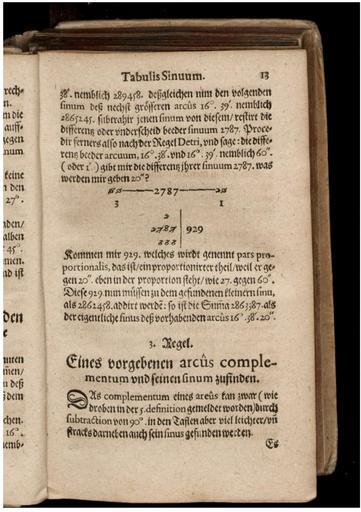 Tabulis Sinuum. 13
38'. nemblich 289458. deßgleichen nim den volgenden
sinum deß nechst grösseren arcûs 16°. 39'. nemblich
2865245. subtrahir jenen sinum von diesem/ restirt die
differentz oder vnderscheid beeder sinuum 2787. Proce-
dir ferners also nach der Regel Detri, vnd sage: die diffe-
rentz beeder arcuum, 16°.38'. vnd 16°. 39'. nemblich 60''.
(oder 1'.) gibt mir die differentz jhrer sinuum 2787. was
werden mir geben 20''?
2787
3 1
929
Kommen mir 929. welches wirdt genennt pars pro-
portionalis, das ist/ ein proportionirter theil/ weil er ge-
gen 20''. eben in der proportion steht/ wie 27. gegen 60''.
Diese 929 nun müssen zu dem gefundenen kleinern sinu,
als 2862458. addirt werdē: so ist die Suma 286387. als
der eigentliche sinus deß vorhabenden arcûs 16°.38'.20''.
3. Regel.
Eines vorgebenen arcûs comple-
mentum vnd seinen sinum zufinden.
DAs complementum eines arcûs kan zwar (wie
droben in der 5. definition gemeldet worden/) durch
subtraction von 90°. in den Taften aber viel leichter/ vñ
stracks darneben auch sein sinus gefunden werden.
Es
rech-
n.
auff-
gegen
inum
keine
n den
27°.
nden/
alben
45°.
nd ist
den
e
nuten
n deß
dem
chen.
16°.
nemb-